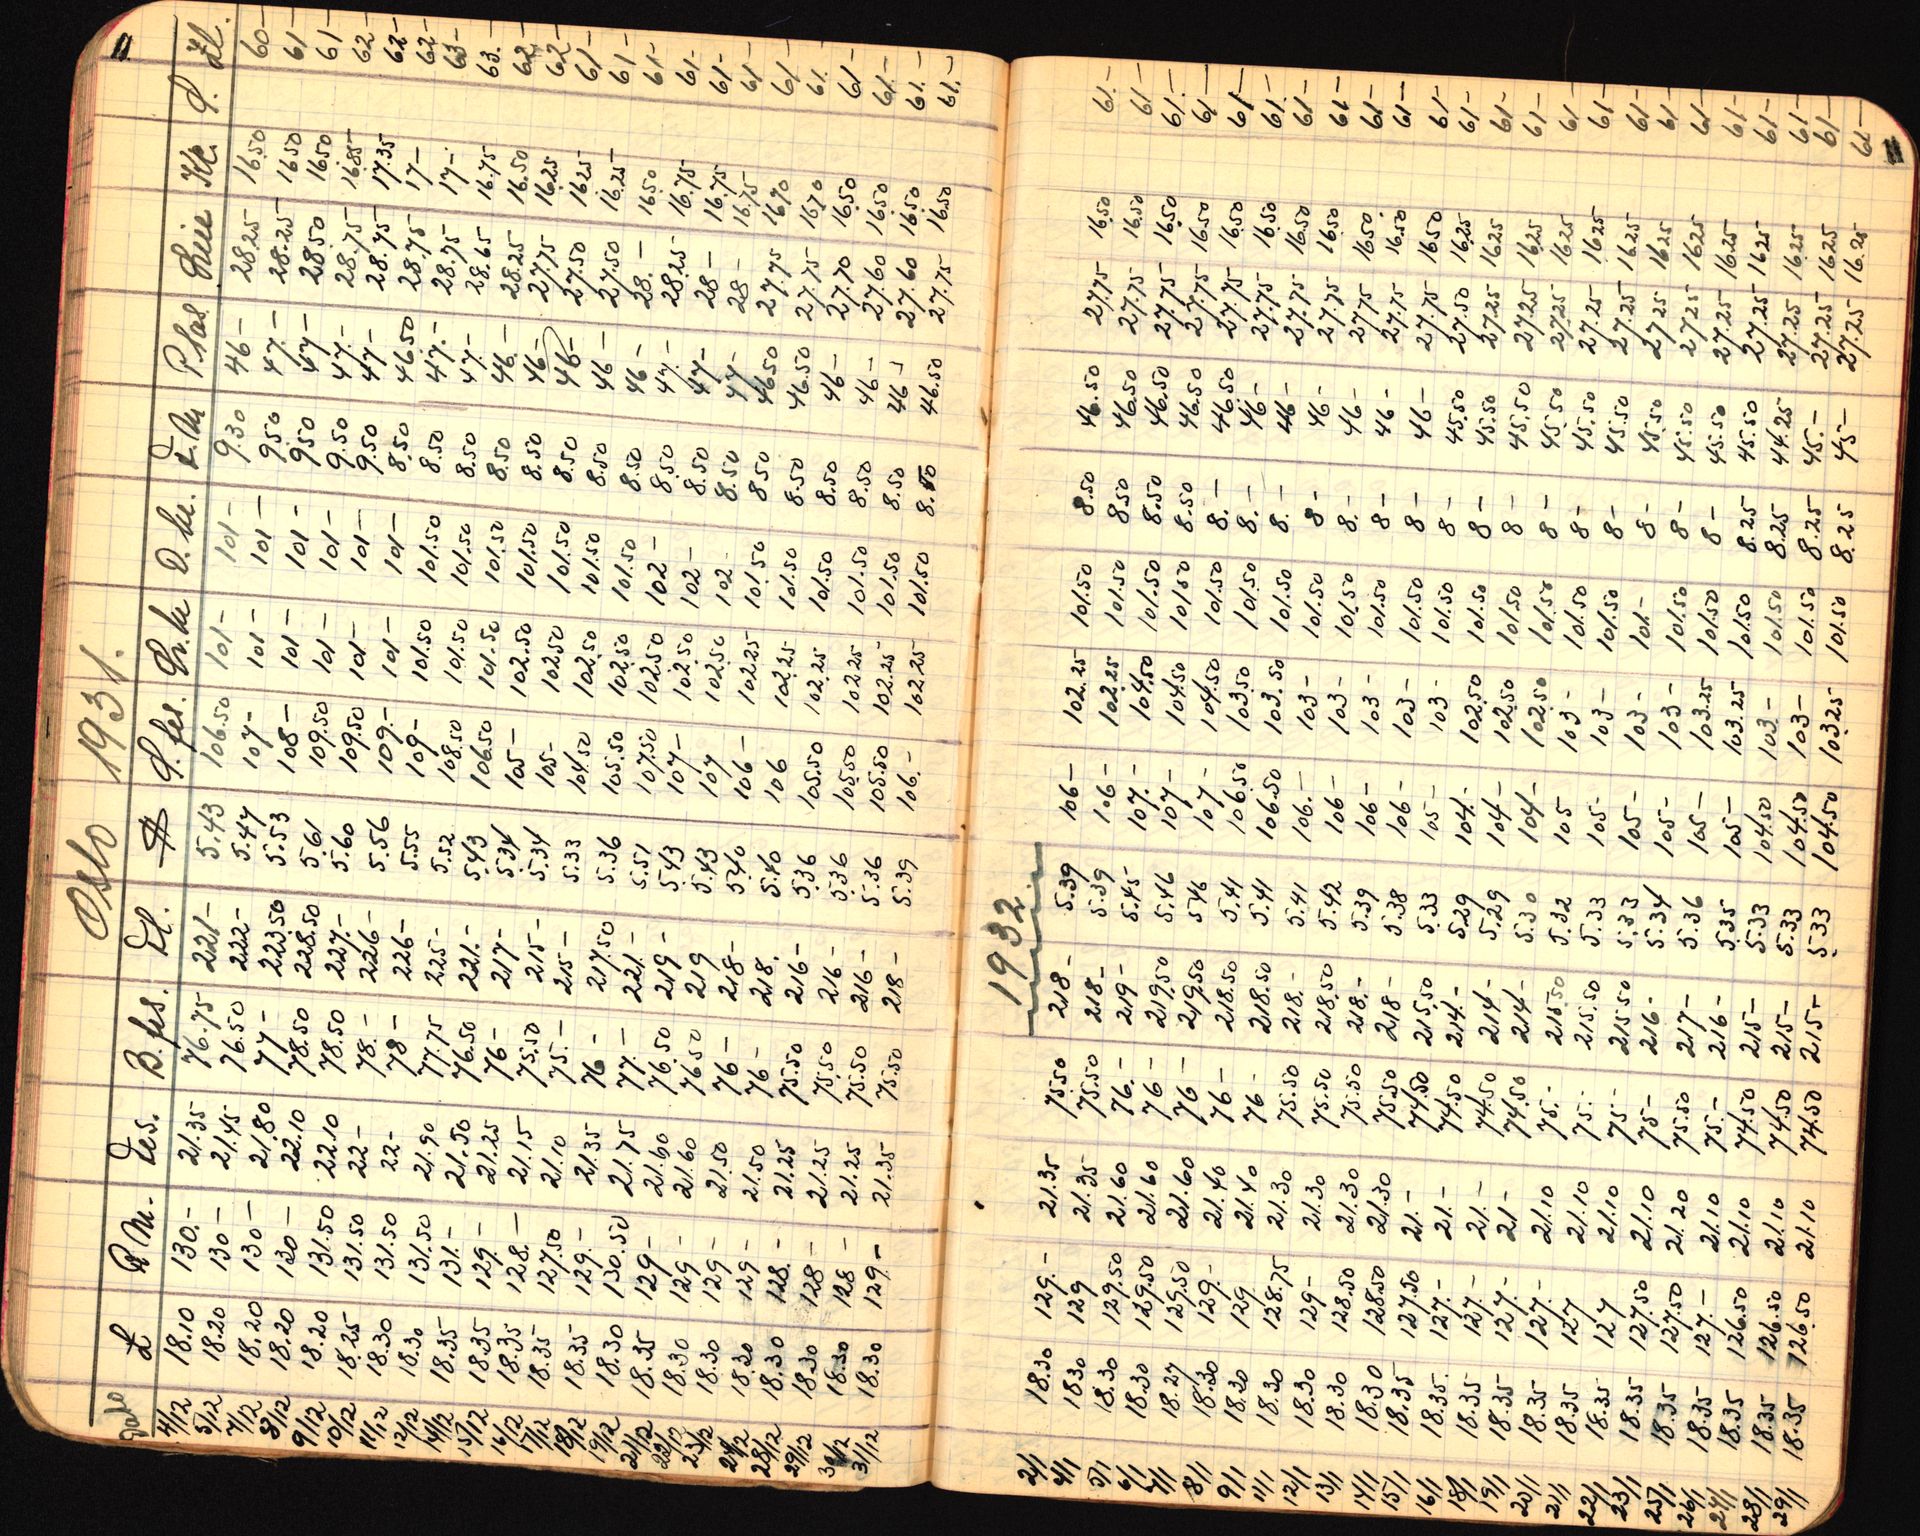 Oslo 1931.
Dato £ R.M. Fcs. B.frs. Fl. $ S.frs. Sv.kr D.kr. F.M Pras Lire Kč. P. Zl.
4/12 18.10 130.- 21.35 76.75 221- 5.43 106.50 101- 101- 9.30 46- 28.25 16.50 60-
5/12 18.20 130- 21.45 76.50 222- 5.47 107- 101- 101- 9.50 47- 28.25 16.50 61-
7/12 18.20 130- 21.80 77- 223.50 5.53 108- 101- 101- 9.50 47- 28.50 16.50 61-
8/12 18.20 130- 22.10 78.50 228.50 5.61 109.50 101- 101- 9.50 47.- 28.75 16.85 62-
9/12 18.20 131.50 22.10 78.50 227.- 5.60 109.50 101- 101- 9.50 47- 28.75 17.35 62-
10/12 18.25 131.50 22- 78.- 226- 5.56 109- 101- 101- 8.50 46.50 28.75 17- 62-
11/12 18.30 131.50 22- 78- 226- 5.55 109- 101.50 101.50 8.50 47.- 28.75 17- 63-
12/12 18.30 131.50 21.90 77.75 225- 5.52 108.50 101.50 101.50 8.50 47.- 28.65 16.75 63.-
14/12 18.35 131.- 21.50 76.50 221.- 5.43 106.50 101.50 101.50 8.50 46.- 28.25 16.50 62-
15/12 18.35 129.- 21.25 76- 217- 5.34 105- 102.50 101.50 8.50 46- 27.75 16.25 62-
16/12 18.35 128.- 21.15 75.50 215- 5.34 105- 102.50 101.50 8.50 46- 27.50 16.25 61-
17/12 18.35 127.50 21.10 75.- 215- 5.33 104.50 102.50 101.50 8.50 46- 27.50 16.25 61-
18/12 18.35 129.- 21.35 76- 217.50 5.36 105.50 102.50 101.50 8.50 46- 28.- 16.50 61-
19/12 18.30 130.50 21.75 77.- 221.- 5.51 107.50 102.50 102- 8.50 47.- 28.25 16.75 61-
21/12 18.35 129- 21.60 76.50 219- 5.43 107- 102.50 102- 8.50 47- 28- 16.75 61-
22/12 18.30 129- 21.60 76.50 219 5.43 107 102.50 102- 8.50 47- 28- 16.75 61-
23/12 18.30 129- 21.50 76- 218- 5.40 106- 102.25 101.50 8.50 46.50 27.75 16.70 61-
24/12 18.30 129- 21.50 76- 218. 5.40 106 102.25 101.50 8.50 46.50 27.75 16.70 61.
28/12 18.30 128.- 21.25 75.50 216- 5.36 105.50 102.25 101.50 8.50 46- 27.70 16.50 61-
29/12 18.30 128- 21.25 75.50 216- 5.36 105.50 102.25 101.50 8.50 46- 27.60 16.50 61.-
30/12 18.30 128- 21.25 75.50 216- 5.36 105.50 102.25 101.50 8.50 46- 27.60 16.50 61.-
31/12 18.30 129.- 21.35 75.50 218- 5.39 106.- 102.25 101.50 8.50 46.50 27.75 16.50 61.-
1932.
2/1 18.30 129.- 21.35 75.50 218- 5.39 106- 102.25 101.50 8.50 46.50 27.75 16.50 61.-
4/1 18.30 129 21.35 75.50 218- 5.39 106- 102.25 101.50 8.50 46.50 27.75 16.50 61-
5/1 18.30 129.50 21.60 76.- 219- 5.45 107.- 104.50 101.50 8.50 46.50 27.75 16.50 61.-
6/1 18.30 129.50 21.60 76- 219.50 5.46 107- 104.50 101.50 8.50 46.50 27.75 16.50 61-
7/1 18.27 129.50 21.60 76- 219.50 5.46 107- 104.50 101.50 8.- 46.50 27.75 16.50 61-
8/1 18.30 129.- 21.40 76- 218.50 5.41 106.50 103.50 101.50 8.- 46- 27.75 16.50 61-
9/1 18.30 129. 21.40 76- 218.50 5.41 106.50 103.50 101.50 8.- 46- 27.75 16.50 61-
11/1 18.30 128.75 21.30 75.50 218.- 5.41 106.- 103- 101.50 8- 46- 27.75 16.50 61-
12/1 18.30 129- 21.30 75.50 218.50 5.42 106- 103- 101.50 8.- 46- 27.75 16.50 61-
13/1 18.30 128.50 21.30 75.50 218.- 5.39 106- 103- 101.50 8- 46- 27.75 16.50 61-
14/1 18.30 128.50 21.30 75.50 218- 5.38 106- 103- 101.50 8- 46- 27.75 16.50 61-
15/1 18.35 127.50 21.- 74.50 215.50 5.33 105- 103- 101.50 8- 45.50 27.50 16.25 61-
16/1 18.35 127.- 21.- 74.50 214.- 5.29 104.- 102.50 101.50 8- 45.50 27.25 16.25 61-
18/1 18.35 127.- 21.- 74.50 214- 5.29 104- 102.50 101.50 8- 45.50 27.25 16.25 61-
19/1 18.35 127.- 21- 74.50 214- 5.30 104- 102.50 101.50 8- 45.50 27.25 16.25 61-
20/1 18.35 127.- 21.10 75.- 215.50 5.32 105 103- 101.50 8- 45.50 27.25 16.25 61-
21/1 18.35 127 21.10 75.- 215.50 5.33 105- 103- 101.50 8- 45.50 27.25 16.25 61-
22/1 18.35 127 21.10 75- 215.50 5.33 105- 103- 101.- 8- 45.50 27.25 16.25 61-
23/1 18.35 127.50 21.10 75- 216- 5.34 105- 103- 101.50 8- 45.50 27.25 16.25 61-
25/1 18.35 127.50 21.20 75.50 217- 5.36 105- 103.25 101.50 8- 45.50 27.25 16.25 61-
26/1 18.35 127.- 21.10 75.- 216- 5.35 105- 103.25 101.50 8.25 45.50 27.25 16.25 61-
27/1 18.35 126.50 21.10 74.50 215- 5.33 104.50 103- 101.50 8.25 44.25 27.25 16.25 61-
28/1 18.35 126.50 21.10 74.50 215- 5.33 104.50 103- 101.50 8.25 45.- 27.25 16.25 61-
29/1 18.35 126.50 21.10 74.50 215- 5.33 104.50 103.25 101.50 8.25 45- 27.25 16.25 61-